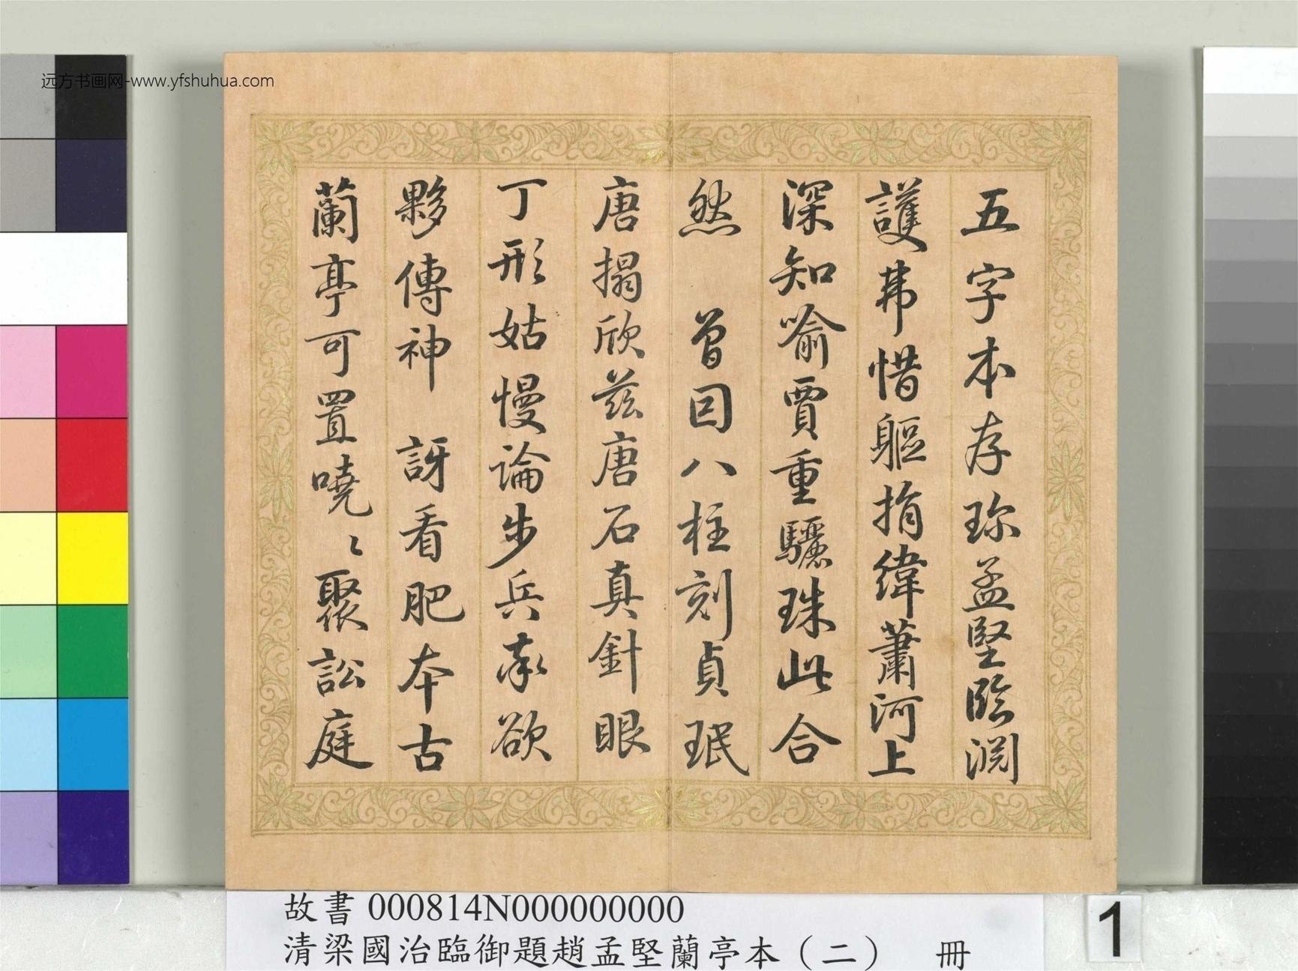 五字本存珎孟堅臨淵
護弗惜軀捐緯蕭河上
深知喻賈重驪珠此合
然 曽因八柱刻貞珉
唐搨欣兹唐石真針眼
丁形姑慢論步兵奉欲
夥傳神 訝看肥本古
蘭亭可置嘵〻聚訟庭
远方书画网-www.yfshuhua.com
故書 000814N000000000
清梁國治臨御題趙孟堅蘭亭本（二） 冊
1